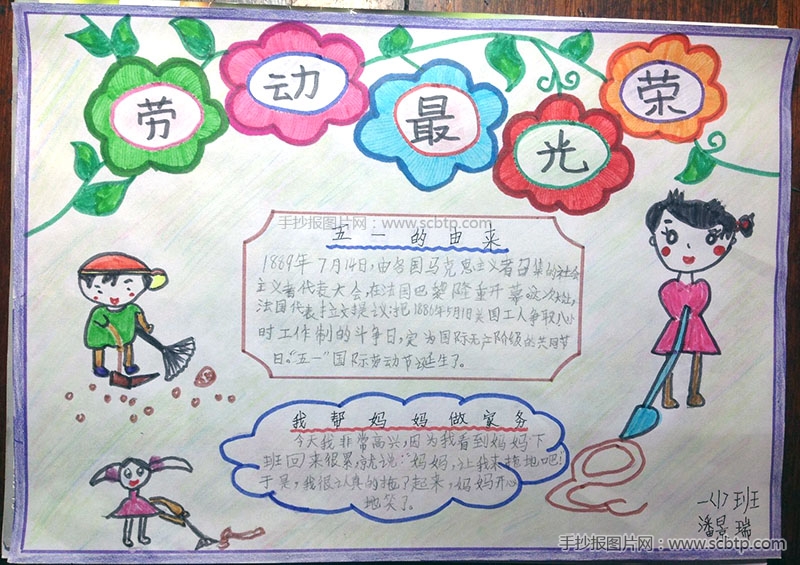 劳动最光荣
手抄报图片网:www.scbtp.com
五一的由来
1889年7月14日,由各国马克思主义者召集的社会
主义者代表大会,在法国巴黎隆重开幕。这次大会上,
法国代表拉文提议:把1886年5月1日美国工人争取八小
时工作制的斗争日,定为国际无产阶级的共同节
日。“五一”国际劳动节诞生了。
我帮妈妈做家务
今天我非常高兴,因为我看到妈妈下
班回来很累,就说:“妈妈,让我来拖地吧!
于是,我很认真的拖了起来,妈妈开心
地笑了。
一〈1〉班
潘景瑞
手抄报图片网:www.scbtp.com